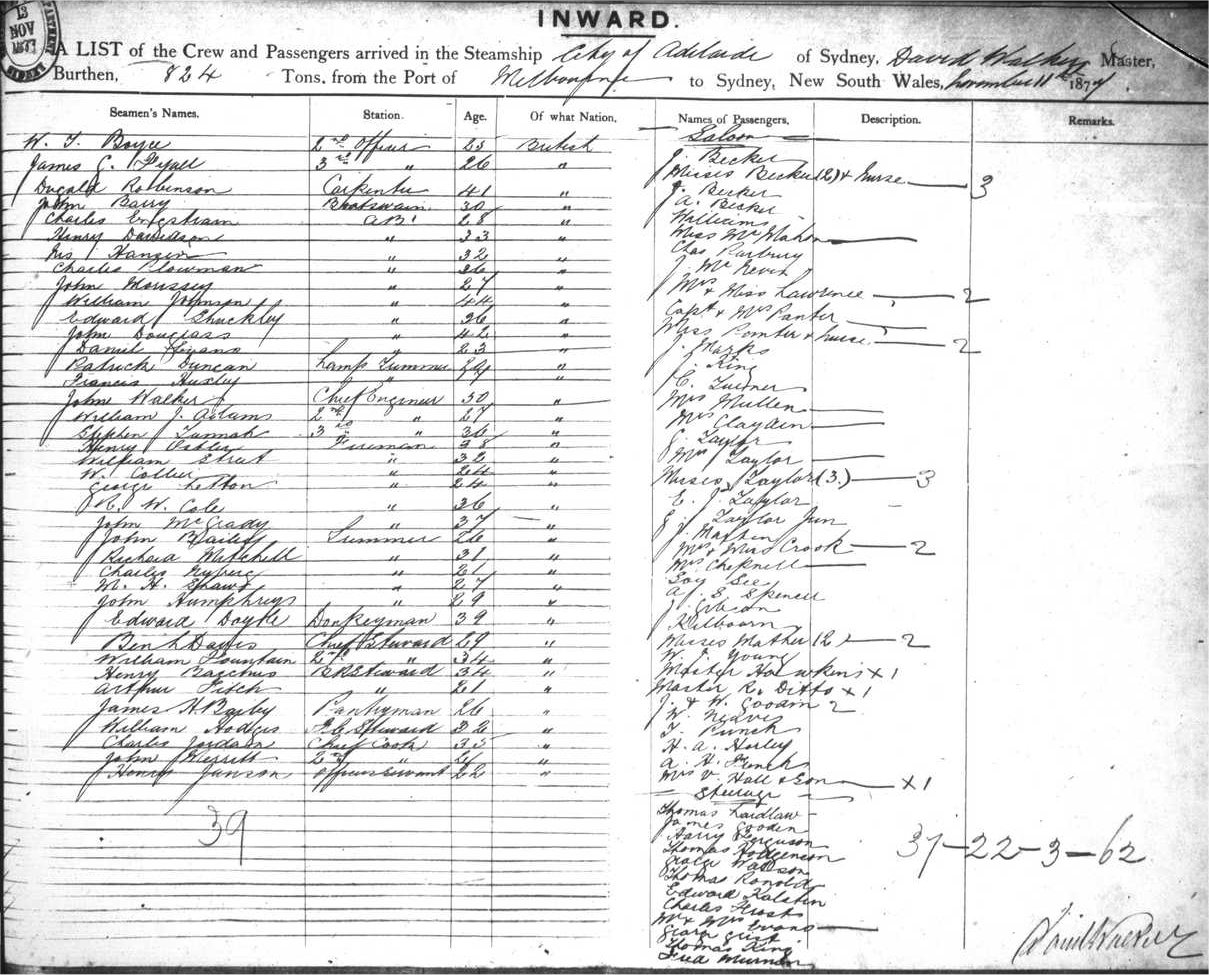 13
NOV
1877
SYDNEY
INWARD.
A LIST of the Crew and Passengers arrived in the Steamship City of Adelaide of Sydney, David Walker Master,
Burthen, 824 Tons, from the Port of Melbourne to Sydney, New South Wales, November 11th 1877
Seamen's Names. Station. Age. Of what Nation. Names of Passengers. Description. Remarks.
Saloon
W. T. Boyce 2nd Officer 25 British
James C. Fyall 3rd " 26 "
Dugald Robinson Carpenter 41 "
John Barry Boatswain 30 "
Charles Engstram AB 28 "
Henry Davidson " 33 "
Hansen " 32 "
Charles Plowman " 26 "
John Morissey " 27 "
William Johnson " 44 "
Edward Shuckley " 26 "
John Douglass " 42 "
Daniel Evans " 23 "
Patrick Duncan Lamp Trimmer "
Francis Huxley "
John Walker Chief Engineer 30 "
William J. Adams 2nd " 27 "
Stephen Tannah 3rd " 36 "
Henry Fireman "
William Street " 32 "
W. Collier " 24 "
George Letton " 24 "
W. Cole " 36 "
John McGrady " 37 "
John Bailey 26 "
Richard Mitchell " 31 "
Charles Nyberg " 21 "
M. H. Shaws " 27 "
John Humphreys " 29 "
Edward Doyle Donkeyman 39 "
Ben L Davis Chief Steward 29 "
William Fountain 2nd " 34 "
Henry Bacchus Steward 34 "
Arthur Fitch " 21 "
James H Barby Pantryman 26 "
William Hodges Steward 32 "
Charles Jordan Chief Cook 35 "
John Merritt 2nd "
Henry Janson Officers Servant 22 "
39
J. Becker
Misses Becker (2) & Nurse 3
J. Becker
A. Becker
Williams
Miss McMahon
Chas Parbury
J. McNevin
Mrs & Miss Lawrence 2
Capt & Mrs Panter
Miss Pointer & nurse 2
J. Marks
J. King
C. Turner
Mrs Mullen
Mrs Clayden
G. Taylor
Mrs Taylor
Misses Taylor (3.) 3
E. J. Taylor
G. Taylor Jun
J. Martin
Mrs & Miss Crook 2
Mrs Cheknell
Goy See
A. J. S. Spencer
J. Gibson
Kilbourn
Misses Mather (2) 2
W. J. Young
Master Hawkins x 1
Master R. Ditto x 1
J. & W. Goodin 2
W. Neaves
T. Punch
H. A. Horley
A. H. French
Mrs V. Hall & Son x 1
Steerage
Thomas Laidlaw
James Gooden
Harry Ferguson
Thomas Hodgenson
George Watson
Thomas Ronolds
Edward Ralston
Charles Frost
Mr & Mrs Evans
George Grist
Thomas King
Fred Murnan
37-22-3-62
David Walker